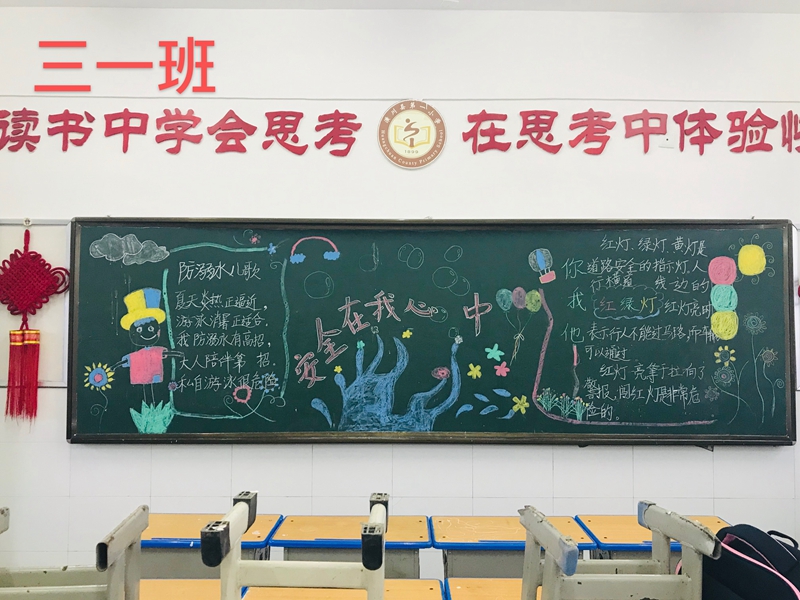 三一班
读书中学会思考
在思考中体验
防溺水儿歌
夏天炎热正接近，
游泳消暑正适合。
我防溺水有高招，
大人陪伴第一招，
私自游泳很危险
安全在我心中
你
我
他
红灯、绿灯、黄灯是
道路安全的指示灯，人
行横道
红绿灯
红灯亮时
表示行人不能过马路，
可以通过
红灯亮等于拉响了
警报，闯红灯是非常危
险的。